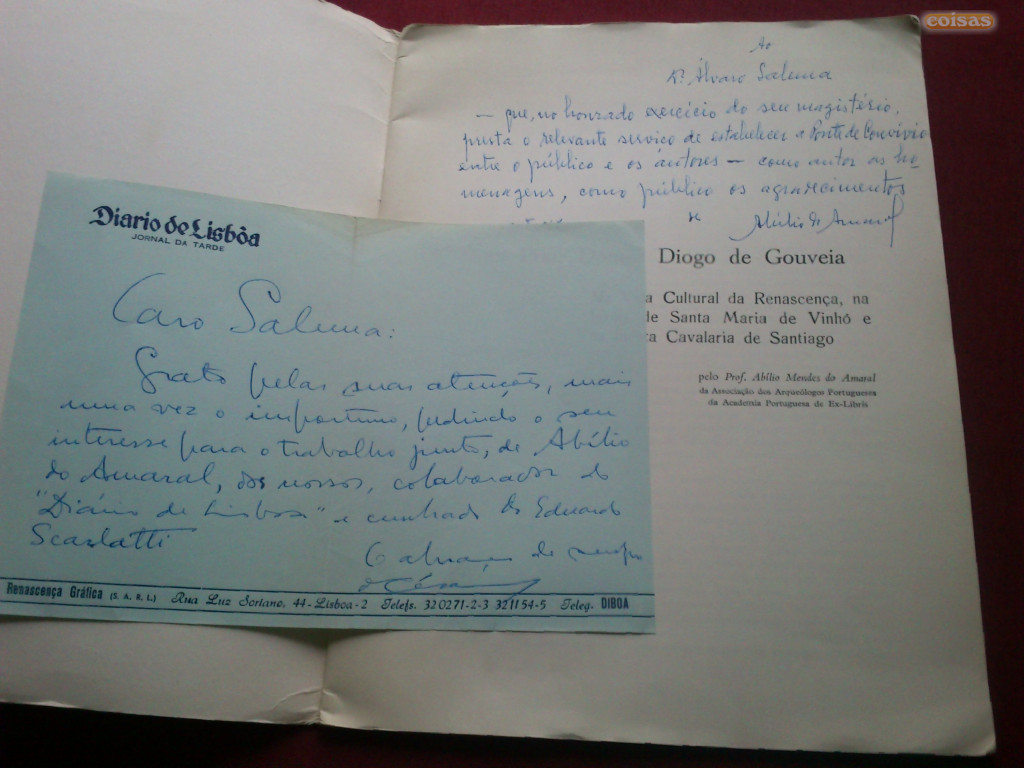 coisas
Ao
Dr. Álvaro Salema
— que, no honrado exercício do seu magistério,
presta o relevante serviço de estabelecer a Ponte de Convívio
entre o público e os autores — como autor as ho-
menagens, como público os agradecimentos
de
Abílio do Amaral
Diogo de Gouveia
a Cultural da Renascença, na
de Santa Maria de Vinhó e
ta Cavalaria de Santiago
pelo Prof. Abílio Mendes do Amaral
da Associação dos Arqueólogos Portugueses
da Academia Portuguesa de Ex-Libris
Diario de Lisbôa
JORNAL DA TARDE
Caro Salema:
Grato pelas suas atenções, mais
uma vez o importuno, pedindo o seu
interesse para o trabalho junto, de Abílio
do Amaral, dos nossos, colaborador do
"Diário de Lisboa" e cunhado do Eduardo
Scarlatti
O abraço de sempre
Renascença Gráfica (S. A. R. L.) Rua Luz Soriano, 44-Lisboa-2 Telefs. 320271-2-3 321154-5 Teleg. DIBOA